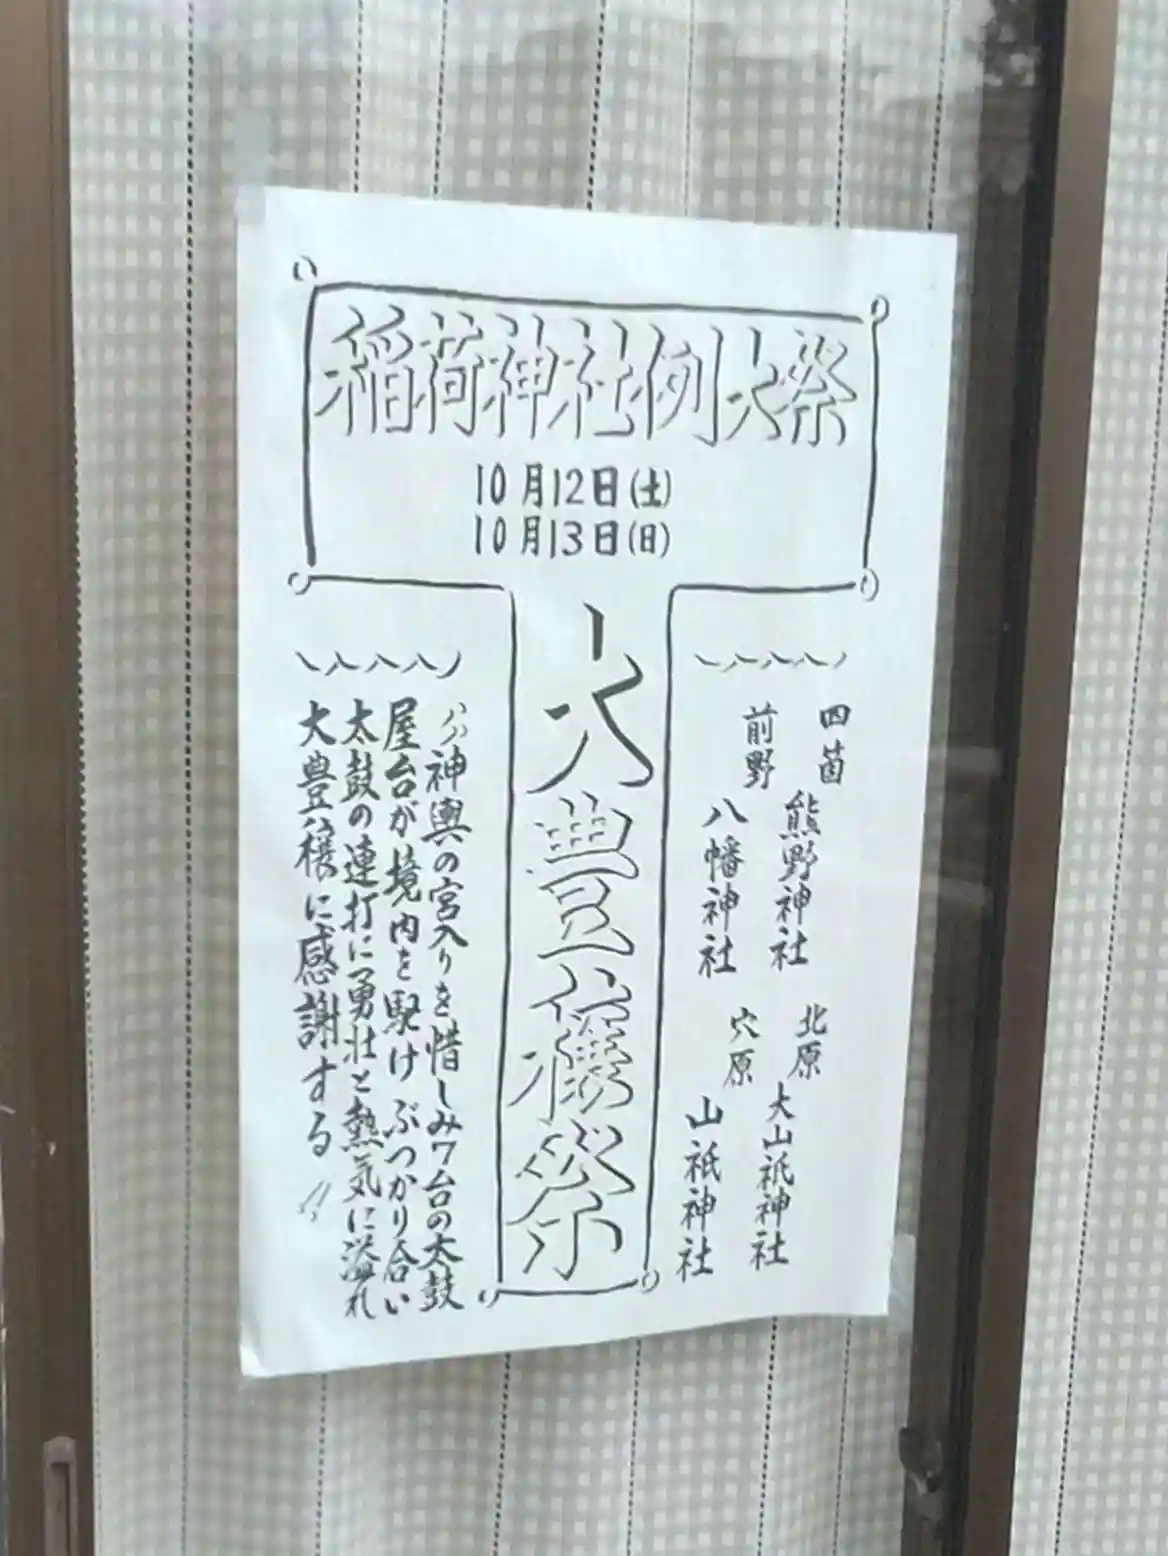 稲荷神社例大祭
10月12日(土)
10月13日(日)
大豊穣祭
四箇
熊野神社
前野
八幡神社
北原
大山祇神社
穴原
山祇神社
神輿の宮入りを惜しみ7台の太鼓
屋台が境内を駆け ぶつかり合い
太鼓の連打に勇壮と熱気に溢れ
大豊穣に感謝する!!